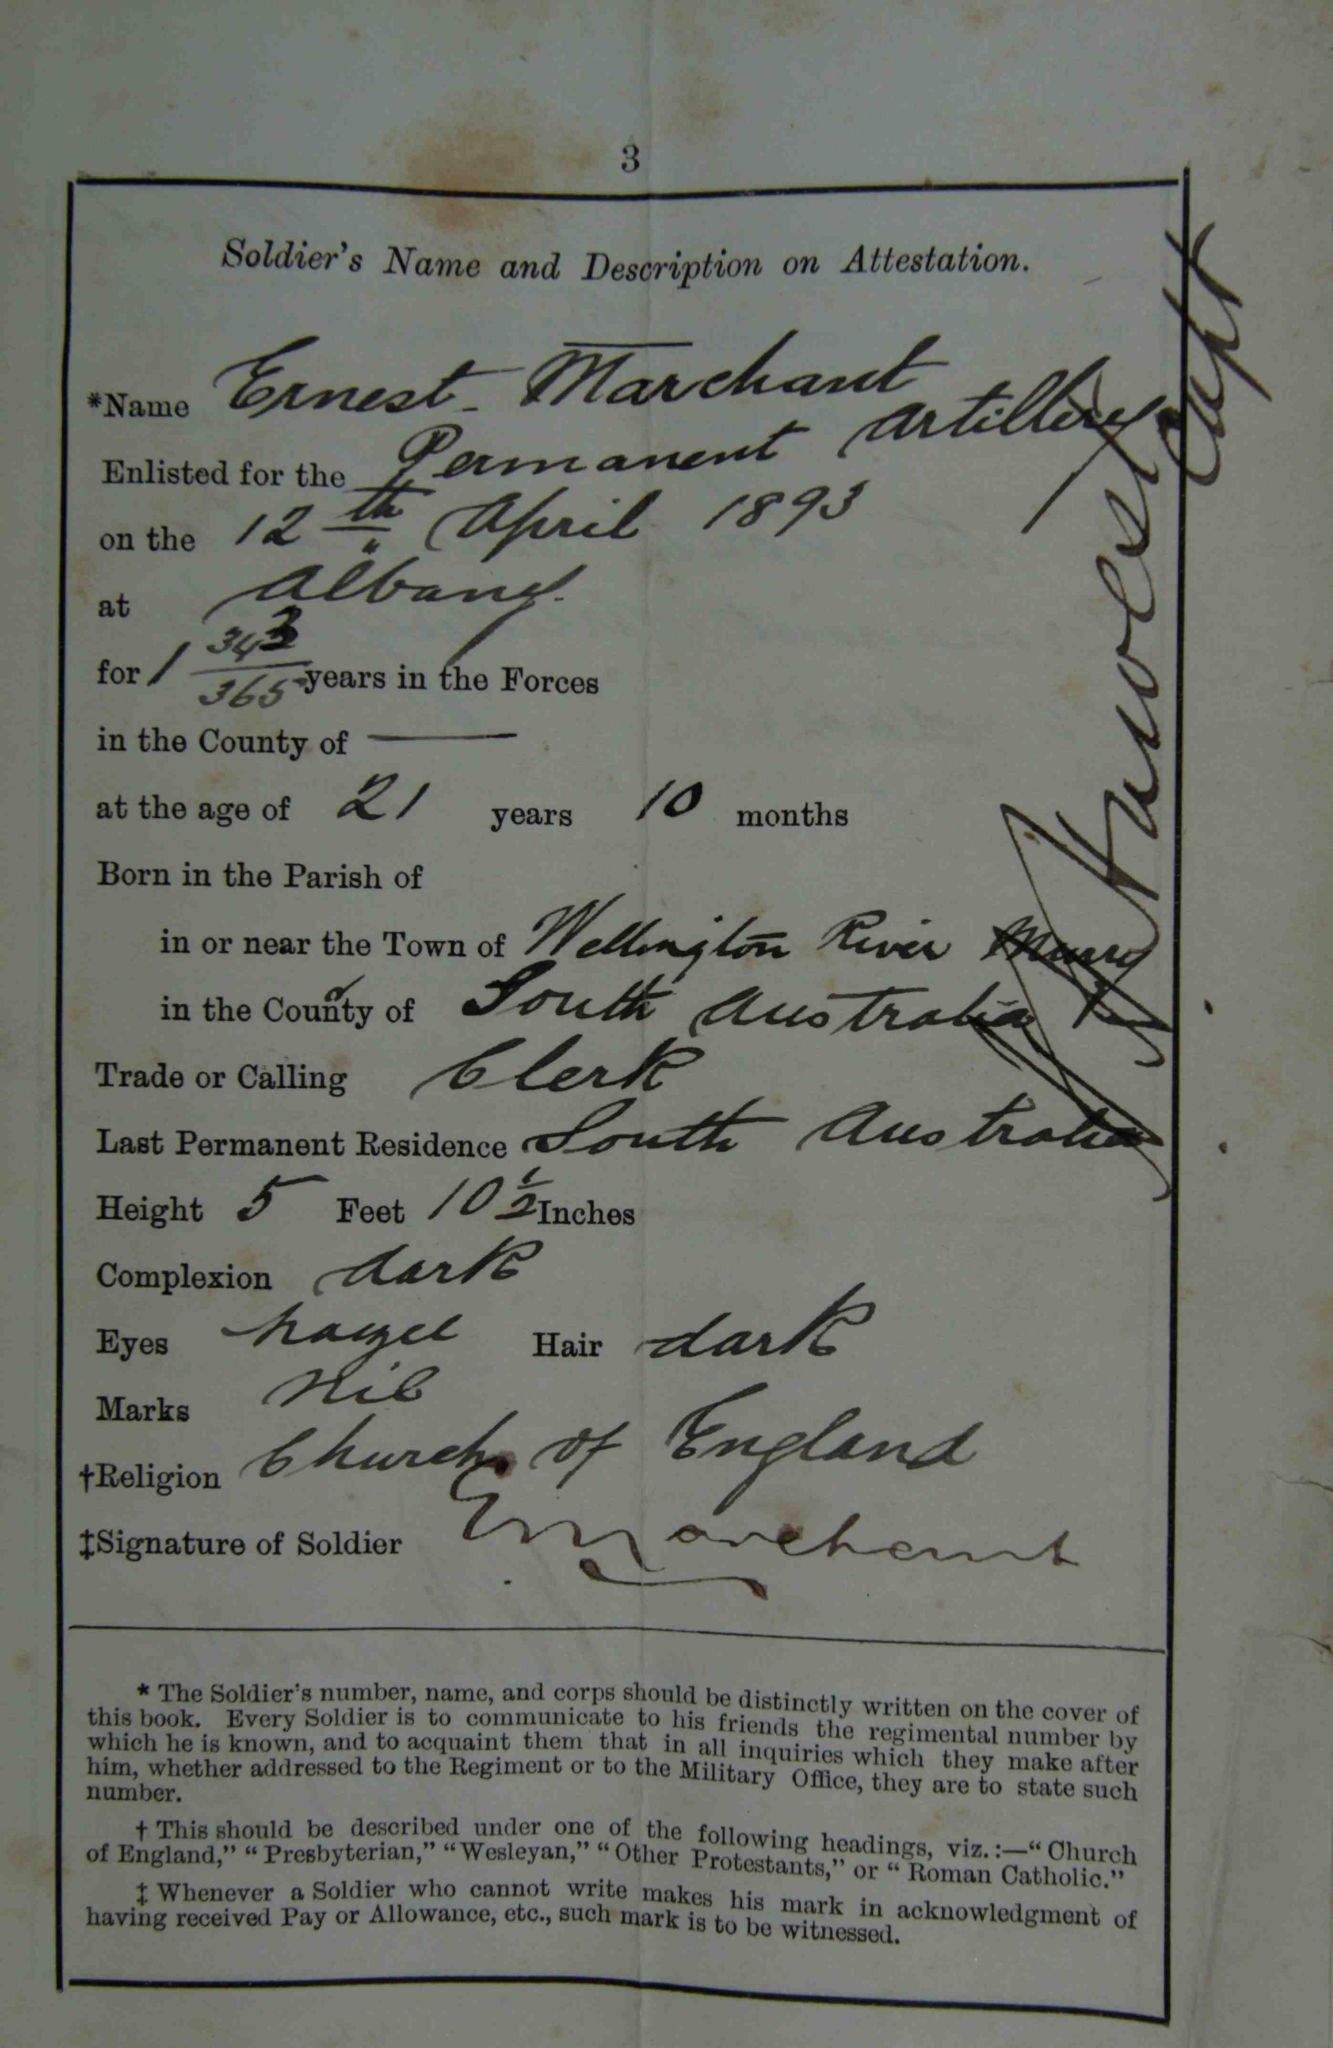 3
Soldier's Name and Description on Attestation.
*Name Ernest Marchant
Enlisted for the Permanent Artillery
on the 12th April 1893
at Albany.
for 1 343/365 years in the Forces
in the County of —
at the age of 21 years 10 months
Born in the Parish of
in or near the Town of Wellington River Murray
in the County of South Australia
Trade or Calling Clerk
Last Permanent Residence South Australia
Height 5 Feet 10 1/2 Inches
Complexion dark
Eyes hazel Hair dark
Marks nil
†Religion Church of England
‡Signature of Soldier E Marchant
Capt
* The Soldier's number, name, and corps should be distinctly written on the cover of
this book. Every Soldier is to communicate to his friends the regimental number by
which he is known, and to acquaint them that in all inquiries which they make after
him, whether addressed to the Regiment or to the Military Office, they are to state such
number.
† This should be described under one of the following headings, viz.:—“Church
of England,” “Presbyterian,” “Wesleyan,” “Other Protestants,” or “Roman Catholic.”
‡ Whenever a Soldier who cannot write makes his mark in acknowledgment of
having received Pay or Allowance, etc., such mark is to be witnessed.